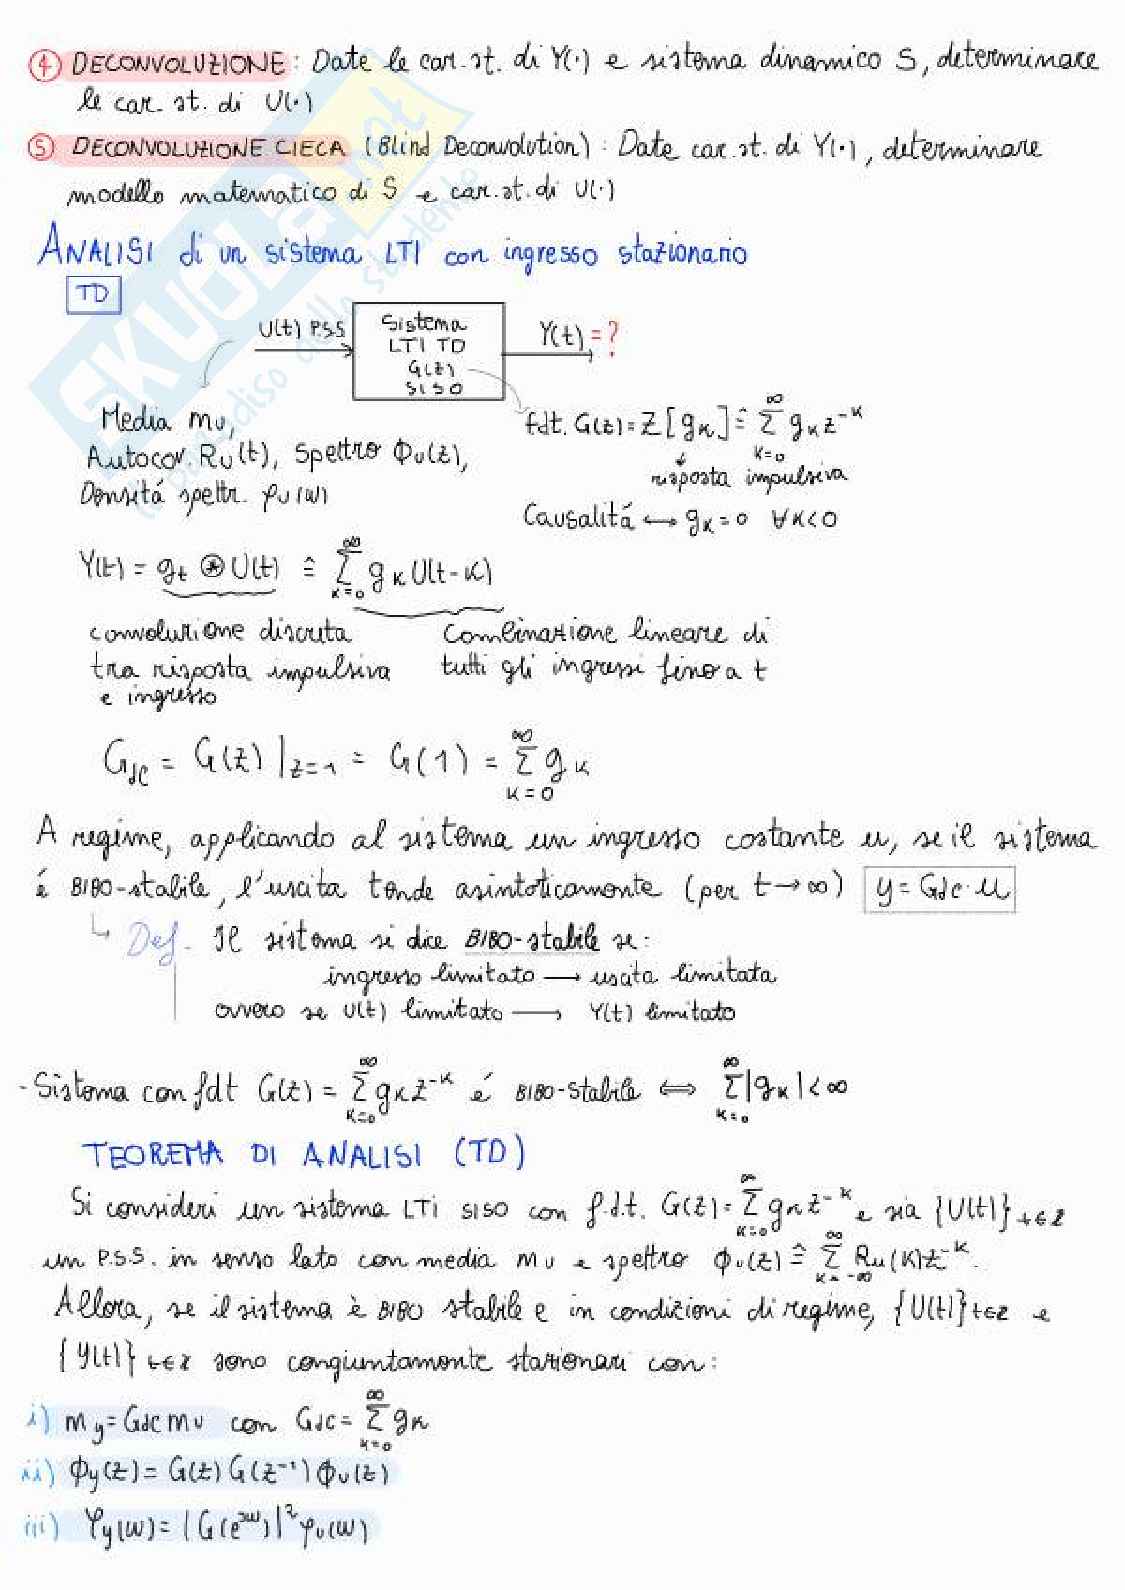 ④ DECONVOLUZIONE: Date le car. st. di Y(·) e sistema dinamico S, determinare
le car. st. di U(·)
⑤ DECONVOLUZIONE CIECA (Blind Deconvolution): Date car. st. di Y(·), determinare
modello matematico di S e car. st. di U(·)
ANALISI di un sistema LTI con ingresso stazionario
TD
U(t) P.S.S
Sistema
LTI TD
G(z)
SISO
Y(t) = ?
Media mᵤ,
Autocov. Rᵤ(t), Spettro Φᵤ(z),
Densitá spettr. φᵤ(ω)
fdt. G(z) = Z[gₖ] ≙ ∑_{k=0}^{∞} gₖ z⁻ᵏ
risposta impulsiva
Causalitá ⟷ gₖ = 0 ∀k<0
Y(t) = g_t ⊛ U(t) ≙ ∑_{k=0}^{∞} gₖ U(t-k)
convoluzione discreta
tra risposta impulsiva
e ingresso
Combinazione lineare di
tutti gli ingressi fino a t
G_dc = G(z)|_{z=1} = G(1) = ∑_{k=0}^{∞} gₖ
A regime, applicando al sistema un ingresso costante u, se il sistema
é BIBO-stabile, l'uscita tende asintoticamente (per t→∞) y = Gdc·u
Def. Il sistema si dice BIBO-stabile se:
ingresso limitato ⟶ uscita limitata
ovvero se U(t) limitato ⟶ Y(t) limitato
- Sistema con fdt G(z) = ∑_{k=0}^{∞} gₖ z⁻ᵏ é BIBO-stabile ⟺ ∑_{k=0}^{∞} |gₖ| < ∞
TEOREMA DI ANALISI (TD)
Si consideri un sistema LTI SISO con f.d.t. G(z) = ∑_{k=0}^{∞} gₖ z⁻ᵏ e sia {U(t)}_{t∈Z}
un P.S.S. in senso lato con media mᵤ e spettro Φᵤ(z) ≙ ∑_{k=-∞}^{∞} Rᵤ(k) z⁻ᵏ.
Allora, se il sistema è BIBO stabile e in condizioni di regime, {U(t)}_{t∈Z} e
{Y(t)}_{t∈Z} sono congiuntamente stazionari con:
i) m_y = Gdc mᵤ con Gdc = ∑_{k=0}^{∞} gₖ
ii) Φ_y(z) = G(z) G(z⁻¹) Φᵤ(z)
iii) φ_y(ω) = |G(e^{jω})|² φᵤ(ω)